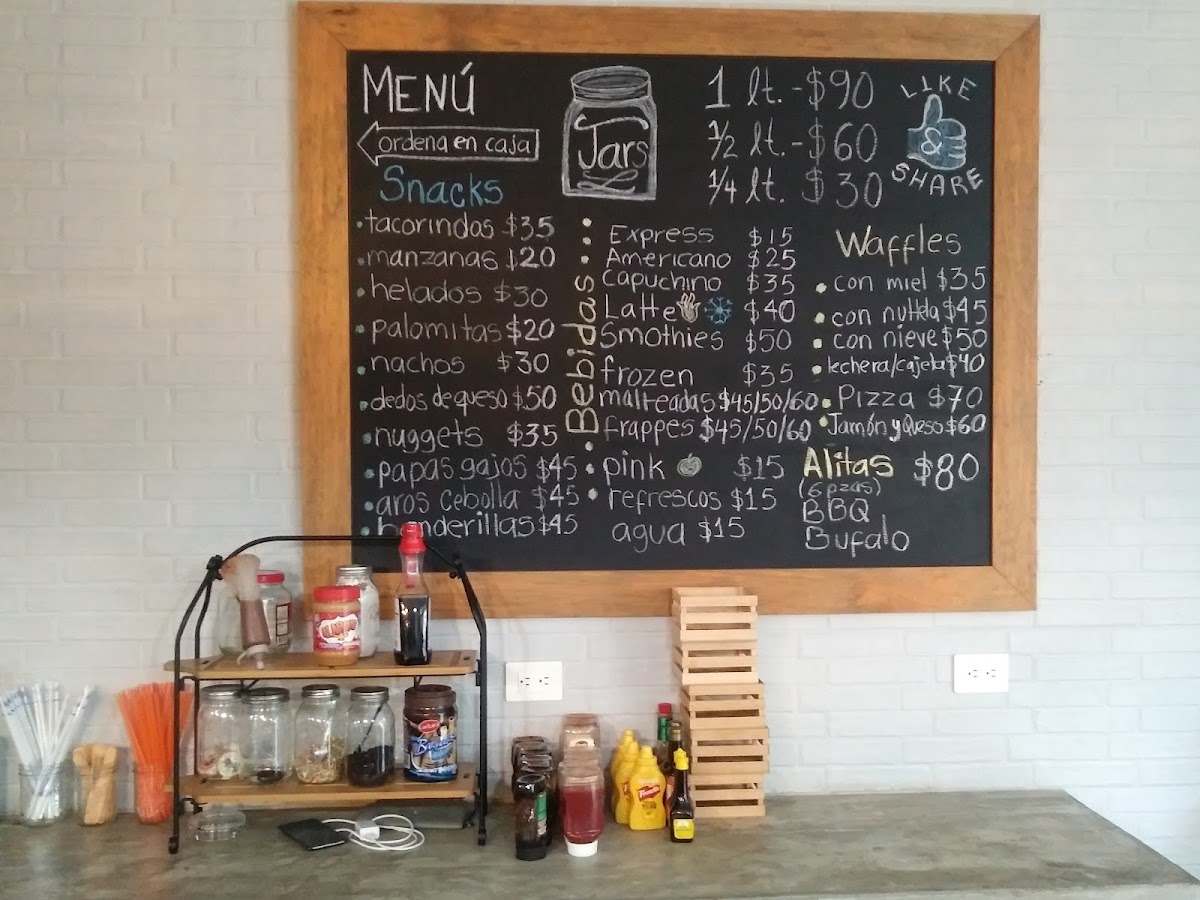 MENÚ
ordena en caja
Snacks
tacorindos $35
manzanas $20
helados $30
palomitas $20
nachos $30
dedos de queso $50
nuggets $35
papas gajos $45
aros cebolla $45
banderillas $45
Jars
1 lt. - $90
1/2 lt. - $60
1/4 lt. $30
LIKE
&
SHARE
Bebidas
Express $15
Americano $25
Capuchino $35
Latte $40
Smothies $50
frozen $35
malteadas $45/50/60
frappes $45/50/60
pink $15
refrescos $15
agua $15
Waffles
con miel $35
con nuttela $45
con nieve $50
lechera/cajeta $40
Pizza $70
Jamón y Queso $60
Alitas $80
(6 pzas)
BBQ
Bufalo
French's